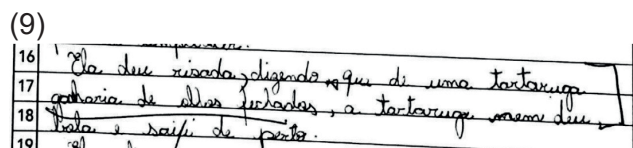 (9)
16 Ela deu risada, dizendo que de uma tartaruga
17 ganharia de olhos fechados, a tartaruga nem deu
18 bola e saiu de perto.
19